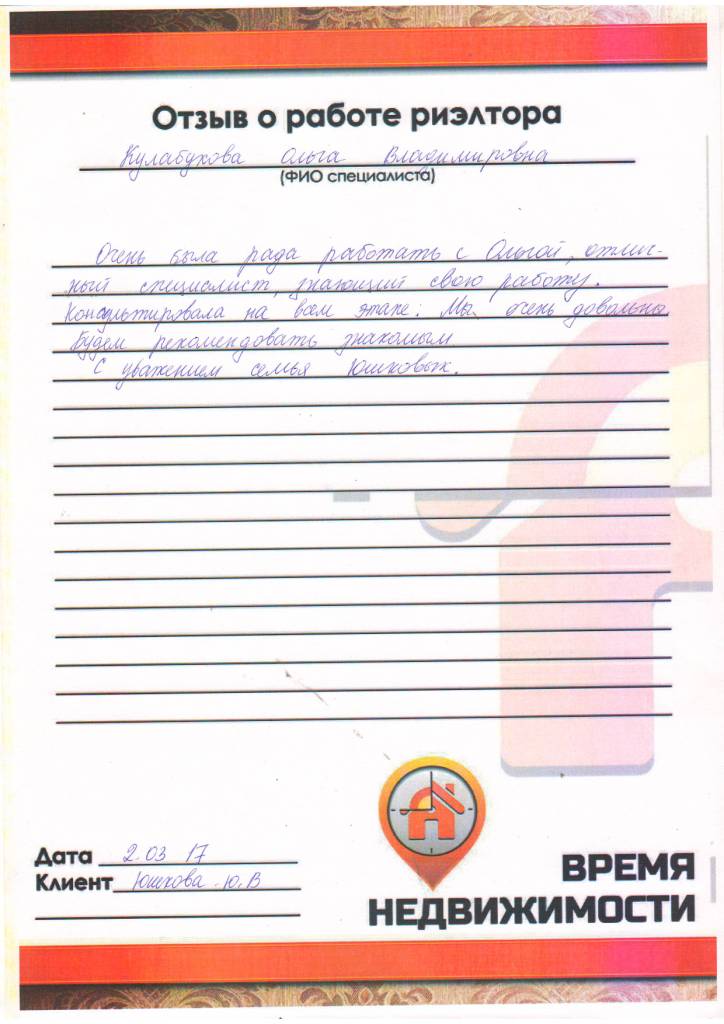 Отзыв о работе риэлтора
Кулабухова Ольга Владимировна
(ФИО специалиста)
Очень была рада работать с Ольгой, отлич-
ный специалист, знающий свою работу.
Консультировала на всем этапе. Мы очень довольны.
Будем рекомендовать знакомым
С уважением семья Юшковых.
Дата 2.03 17
Клиент Юшкова Ю.В
ВРЕМЯ
НЕДВИЖИМОСТИ